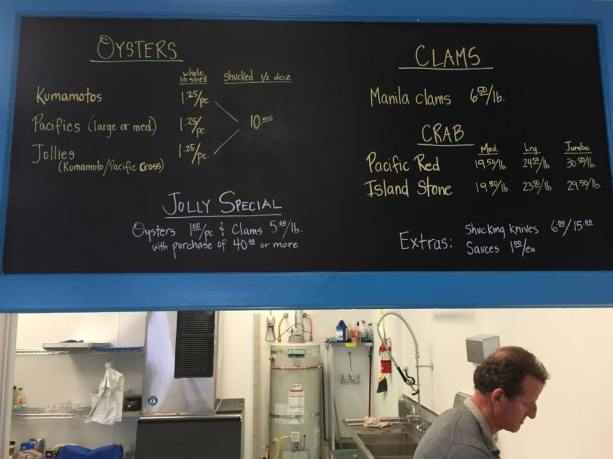 OYSTERS
whole in shell
shucked 1/2 doz
Kumamotos 1.25/pc
Pacifics (large or med.) 1.25/pc 10.00
Jollies 1.25/pc
(Kumamoto/Pacific Cross)
JOLLY SPECIAL
Oysters 1.00/pc & Clams 5.00/lb.
with purchase of 40.00 or more
CLAMS
Manila clams 6.50/lb.
CRAB
Med. Lrg. Jumbo
Pacific Red 19.50/lb. 30.50/lb.
Island Stone 19.50/lb. 29.50/lb.
Extras: Shucking knives 6.00/15.00
Sauces 1.00/ea